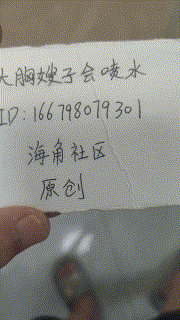 大胸嫂子会喷水
ID:166798079301
海角社区
原创